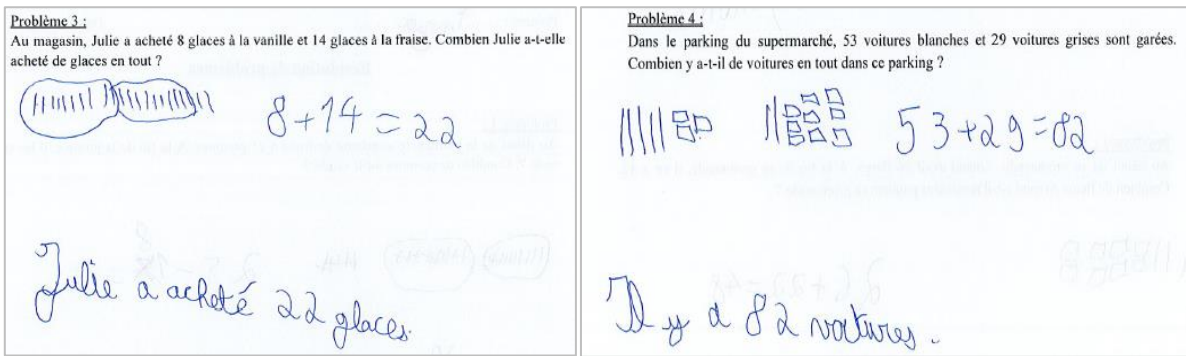 Problème 3 :
Au magasin, Julie a acheté 8 glaces à la vanille et 14 glaces à la fraise. Combien Julie a-t-elle
acheté de glaces en tout ?
8+14=22
Julie a acheté 22 glaces.
Problème 4 :
Dans le parking du supermarché, 53 voitures blanches et 29 voitures grises sont garées.
Combien y a-t-il de voitures en tout dans ce parking ?
53+29=82
Il y a 82 voitures.